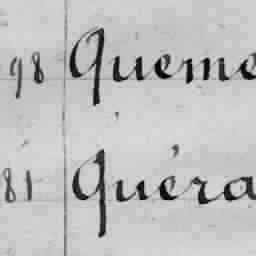 98 Queme
81 Quéra